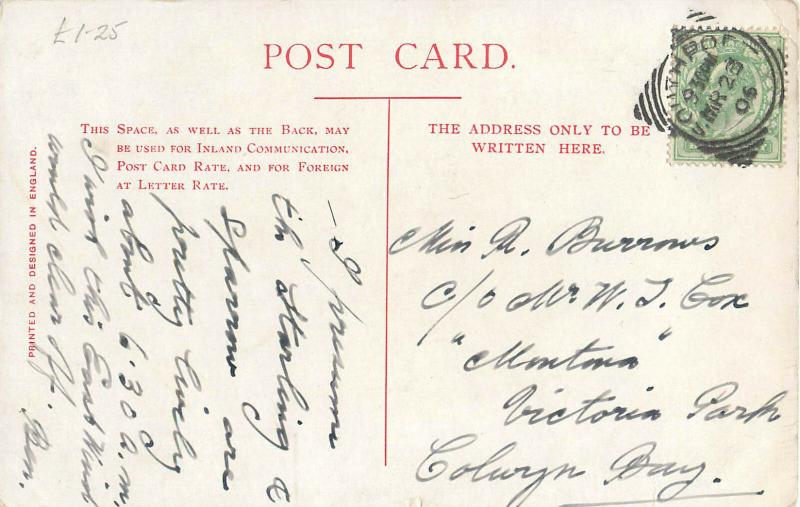 £1-25
POST CARD.
THIS SPACE, AS WELL AS THE BACK, MAY
BE USED FOR INLAND COMMUNICATION,
POST CARD RATE, AND FOR FOREIGN
AT LETTER RATE.
THE ADDRESS ONLY TO BE
WRITTEN HERE.
PRINTED AND DESIGNED IN ENGLAND.
MR 23
06
- I presume
the Starling &
Sparrow are
pretty lively
about 6.30 a.m.
I wish this East Wind
would clear off. Ben.
Miss R. Burrows
c/o Mr W. J. Cox
"Montana"
Victoria Park
Colwyn Bay.